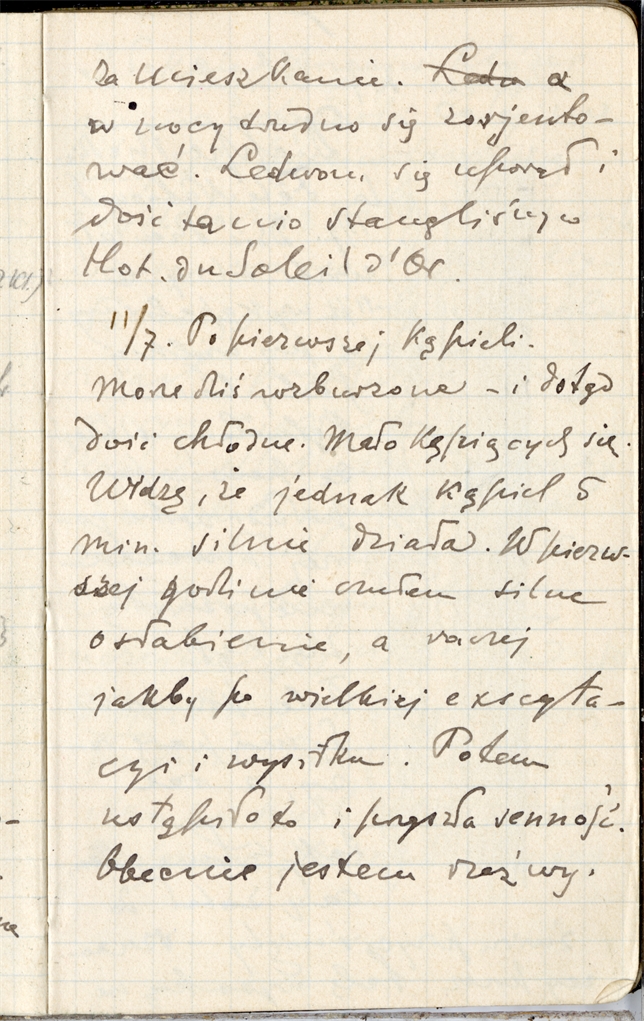 za mieszkanie. a
w nocy trudno się zorjento-
wać. Ledwom się uparł i
dość tanio stanęliśmy w
Hot. du Soleil d'Or.
11/7. Po pierwszej kąpieli.
Morze dziś wzburzone – i dotąd
dość chłodne. Mało kąpiących się.
Widzę, że jednak kąpiel 5
min. silnie działa. W pierw-
szej godzinie czułem silne
osłabienie, a raczej
jakby po wielkiej exscyta-
cyi i wysiłku. Potem
ustąpiło to i przyszła senność.
Obecnie jestem rzeźwy.